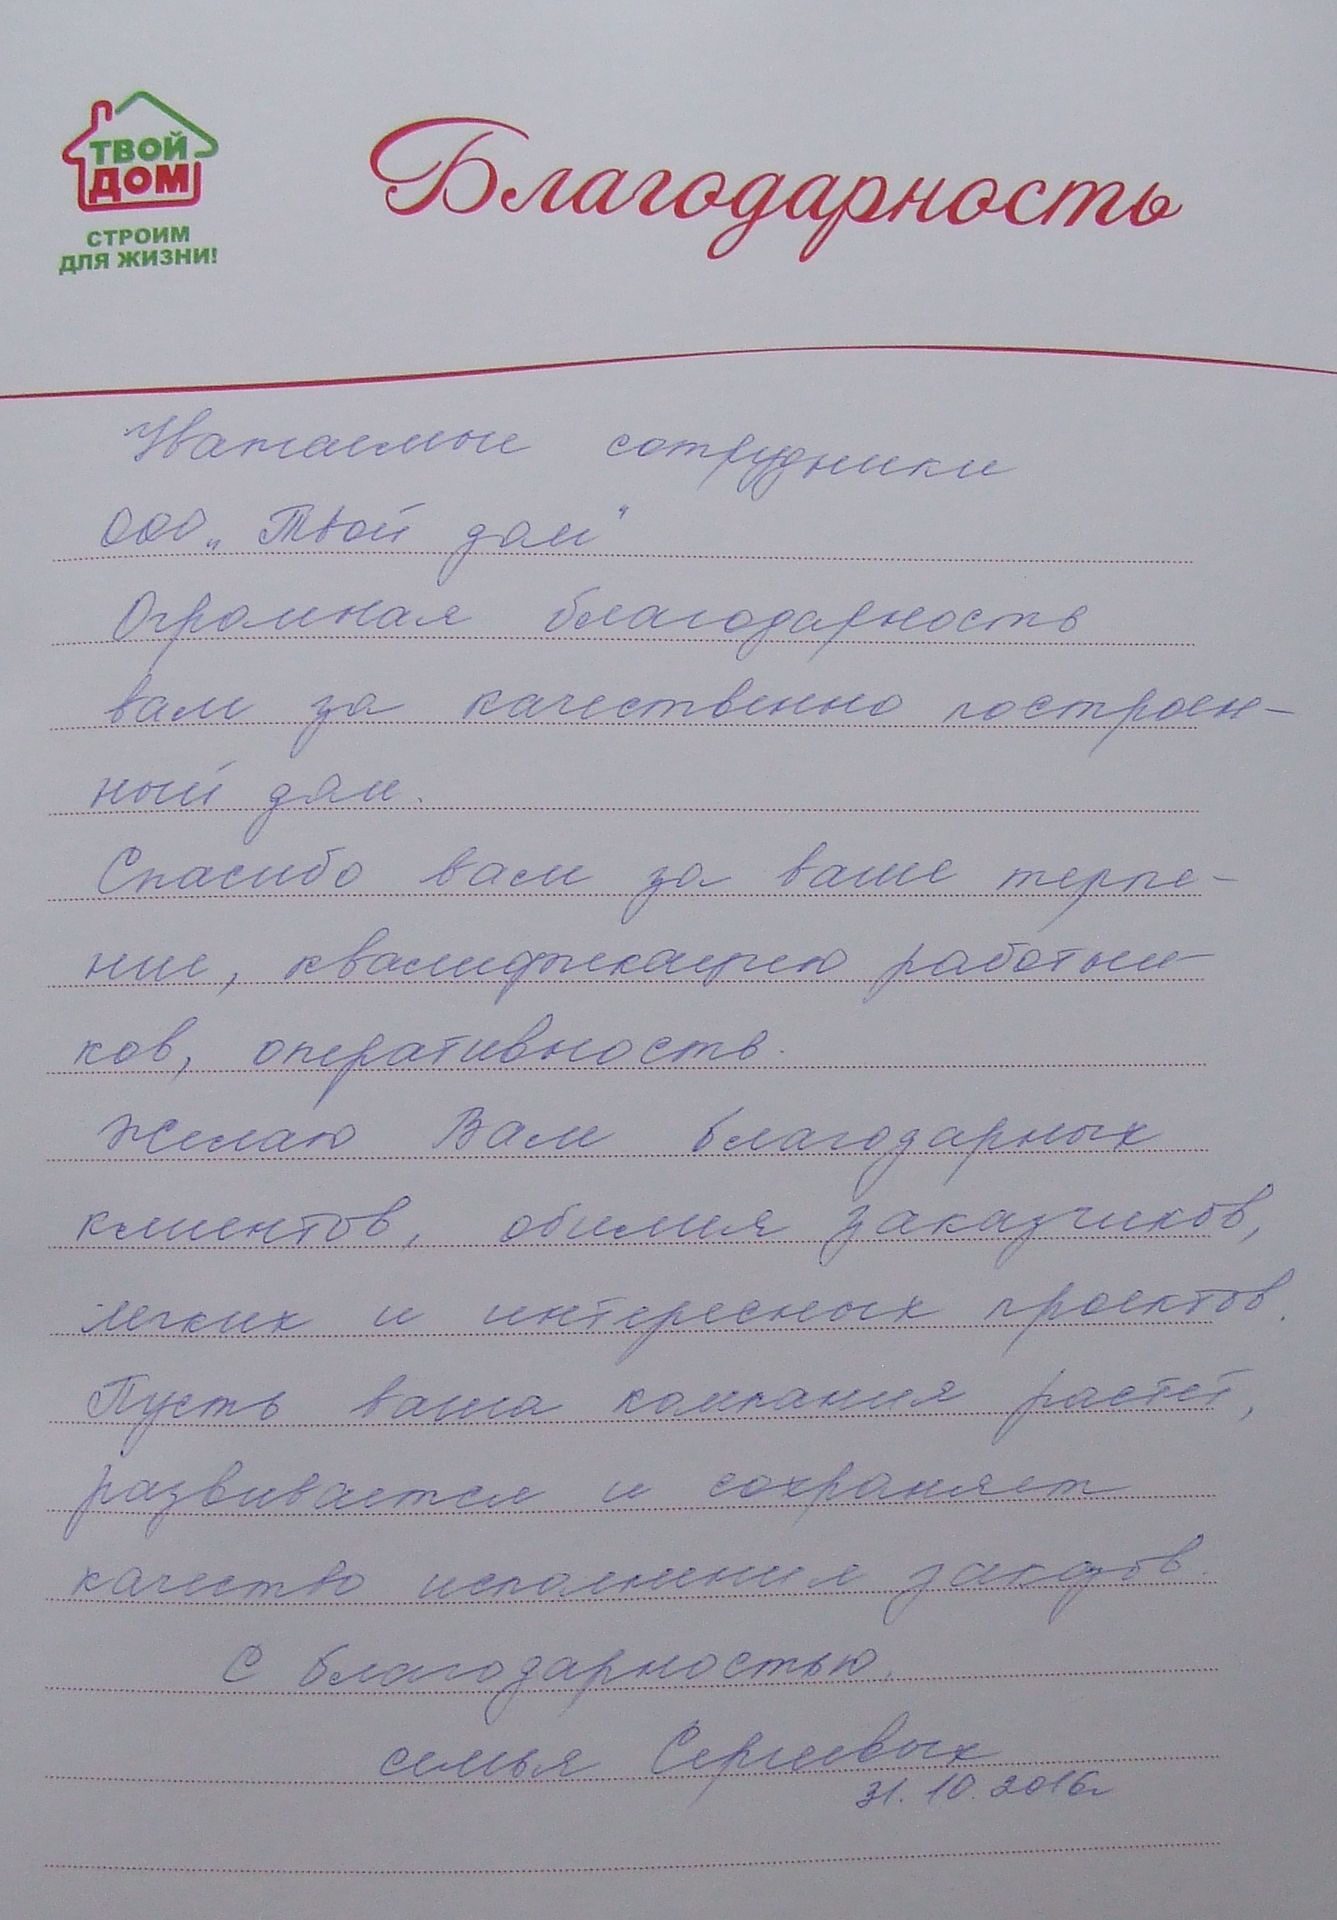 ТВОЙ
ДОМ
СТРОИМ
ДЛЯ ЖИЗНИ!
Благодарность
Уважаемые сотрудники
ООО „Твой дом"
Огромная благодарность
вам за качественно построен-
ный дом.
Спасибо вам за ваше терпе-
ние, квалификацию работни-
ков, оперативность.
Желаю Вам благодарных
клиентов, обилия заказчиков,
легких и интересных проектов.
Пусть ваша компания растёт,
развивается и сохраняет
качество исполнения заказов.
С благодарностью,
семья Сергеевых
31.10.2016г